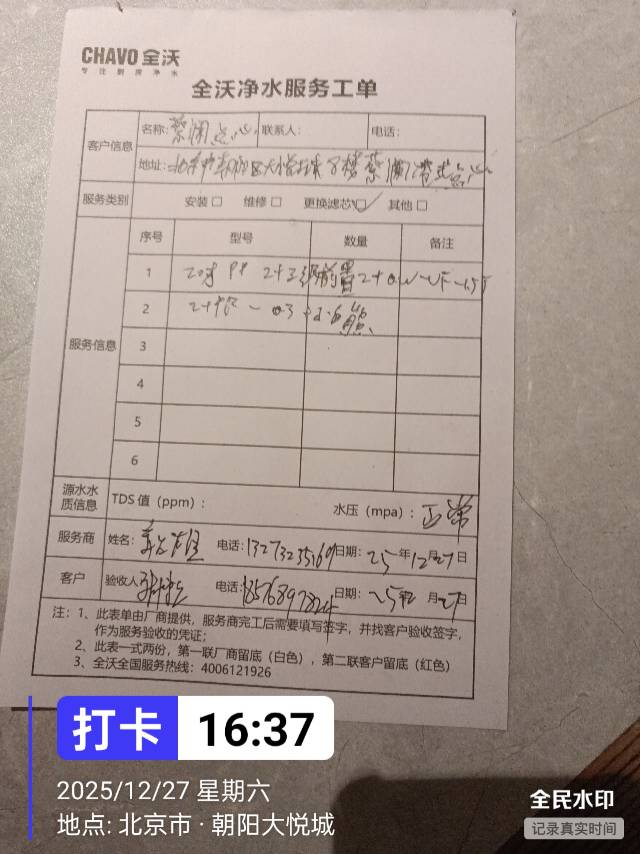 CHAVO 全沃
专注厨房净水
全沃净水服务工单
客户信息 名称: 蔡澜点心 联系人: 电话:
地址: 北京市朝阳区大悦城 8楼蔡澜港式点心
服务类别 安装□ 维修□ 更换滤芯☑ 其他□
服务信息 序号 型号 数量 备注
1 20寸 PP 2+三级前置2+
2
3
4
5
6
源水水质信息 TDS 值（ppm）: 水压（mpa）: 正常
服务商 姓名: 电话: 13273235169 日期: 25 年 12 月 27 日
客户 验收人 电话: 日期: 25年 月 27 日
注：1、此表单由厂商提供，服务商完工后需要填写签字，并找客户验收签字，
作为服务验收的凭证；
2、此表一式两份，第一联厂商留底（白色），第二联客户留底（红色）
3、全沃全国服务热线：4006121926
打卡 16:37
2025/12/27 星期六
地点: 北京市 · 朝阳大悦城
全民水印
记录真实时间